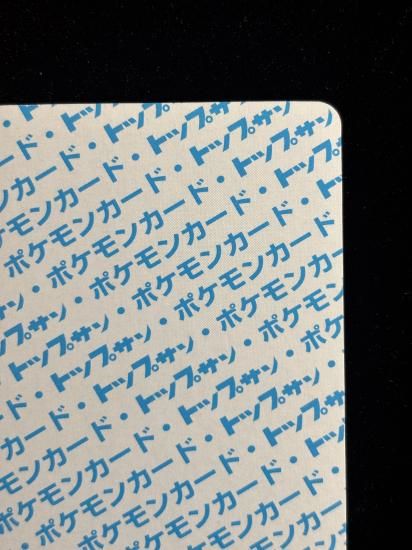 ード・トップ
カード・トップサン
モンカード・トップサン
ポケモンカード・トップサン
・ポケモンカード・トップサ
サン・ポケモンカード・ト
トップサン・ポケモンカード
・トップサン・ポケモンカー
ド・トップサン・ポケモン
カード・トップサン・ポケ
モンカード・トップサン・
ポケモンカード・トップサン
ポケモンカード・トップ
ポケモンカード・
ポケモンカード